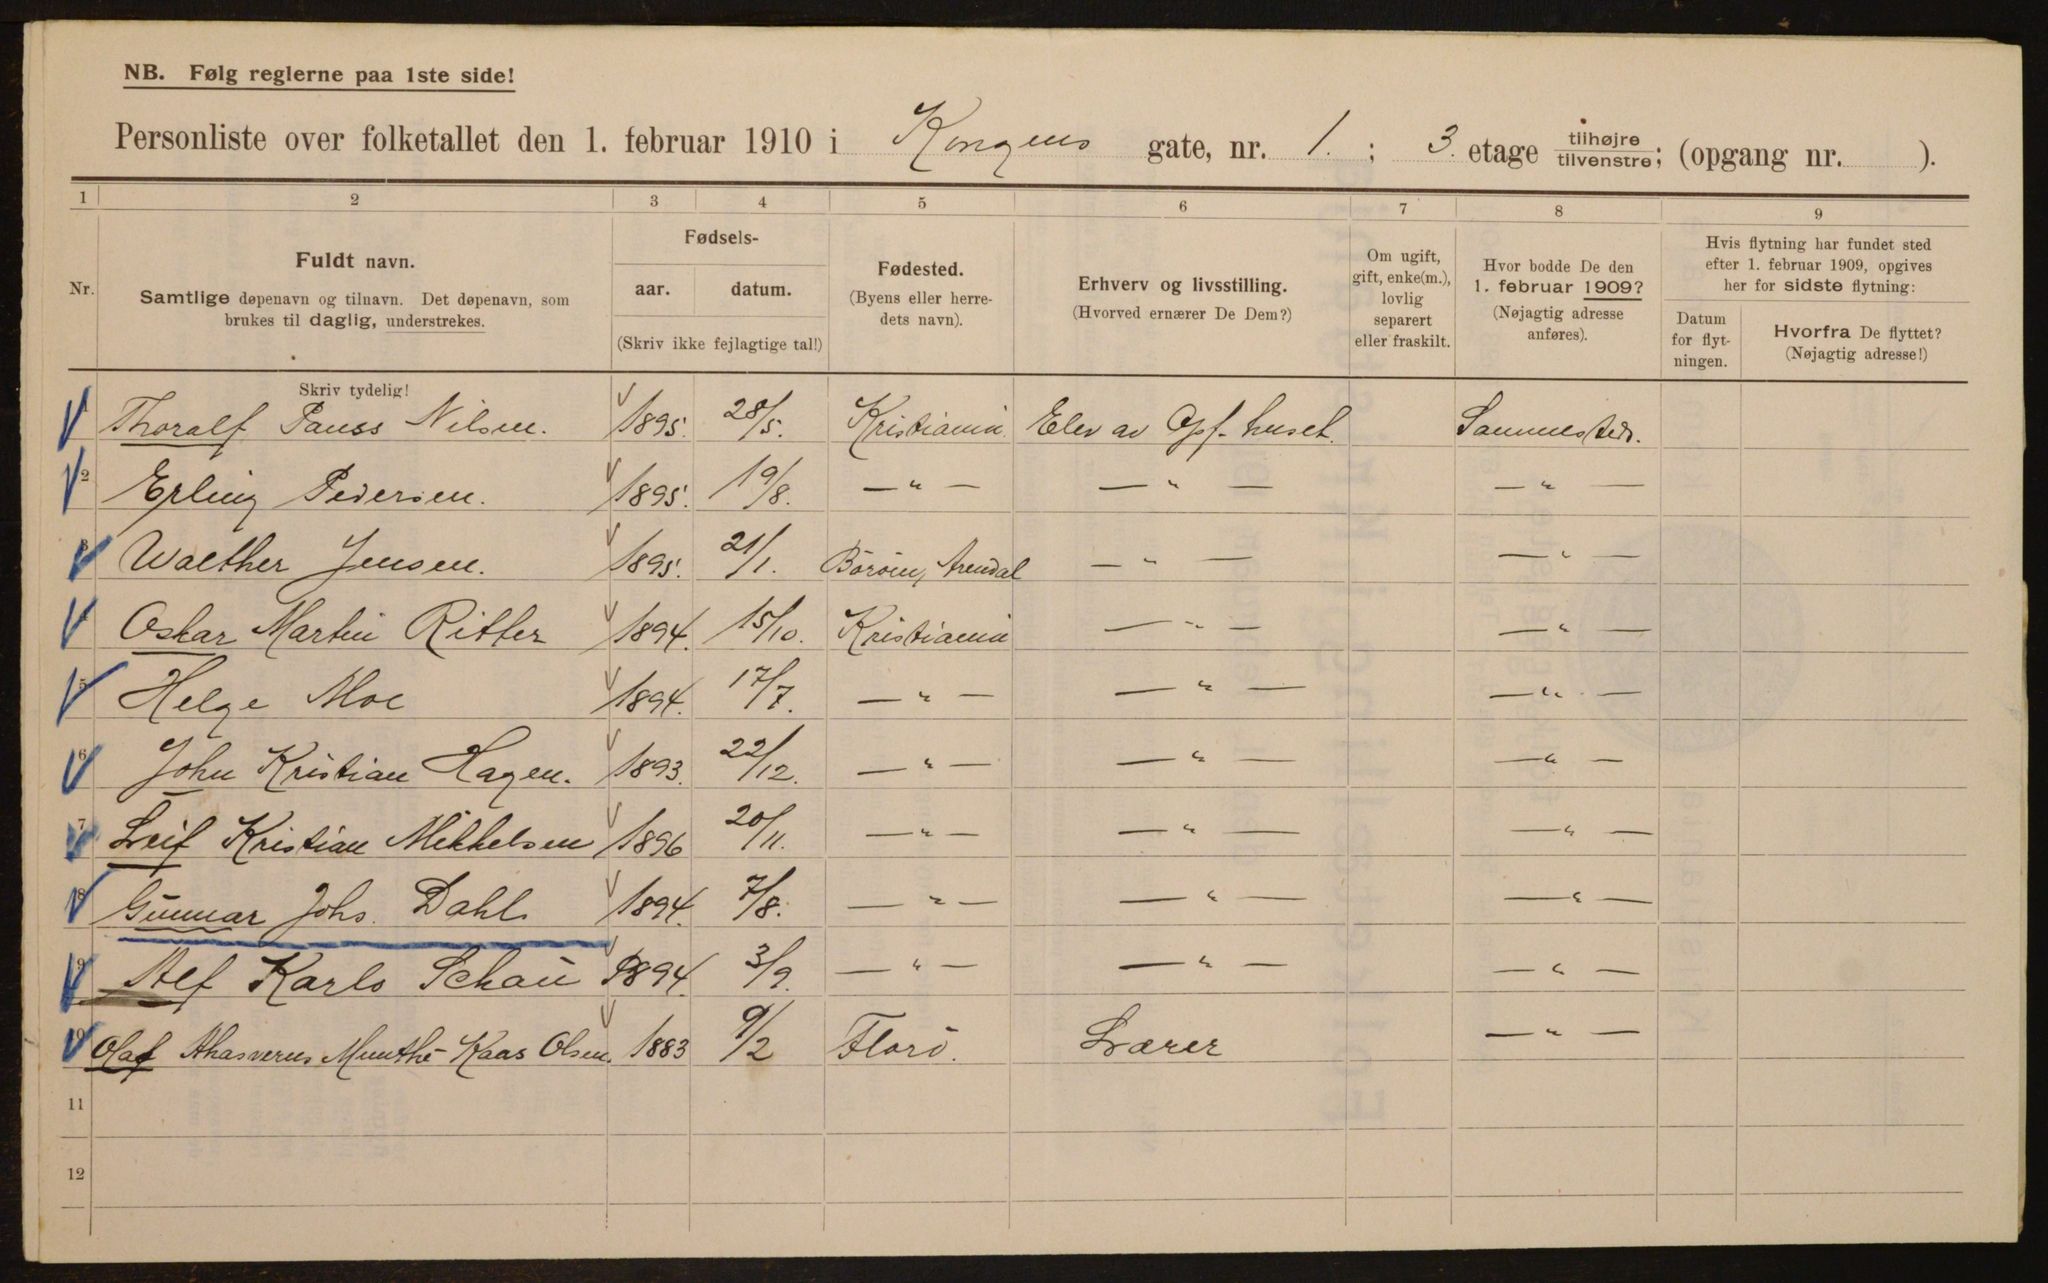 NB. Følg reglerne paa 1ste side!
Personliste over folketallet den 1. februar 1910 i Kongens gate, nr. 1. ; 3. etage tilhøjre/tilvenstre; (opgang nr. ).
1 2 3 4 5 6 7 8 9
Nr.
Fuldt navn.
Samtlige døpenavn og tilnavn. Det døpenavn, som
brukes til daglig, understrekes.
Skriv tydelig!
Fødsels-
aar. datum.
(Skriv ikke fejlagtige tal!)
Fødested.
(Byens eller herre-
dets navn).
Erhverv og livsstilling.
(Hvorved ernærer De Dem?)
Om ugift,
gift, enke(m.),
lovlig
separert
eller fraskilt.
Hvor bodde De den
1. februar 1909?
(Nøjagtig adresse
anføres).
Hvis flytning har fundet sted
efter 1. februar 1909, opgives
her for sidste flytning:
Datum
for flyt-
ningen.
Hvorfra De flyttet?
(Nøjagtig adresse!)
1 Thoralf Pauss Nilsen. 1895. 28/5. Kristiania Elev av Opf. huset. Sammesteds.
2 Erling Pedersen. 1895. 19/8. — " — — " — — " —
3 Walther Jensen. 1895. 21/1. Boröien, Arendal — " — — " —
4 Oskar Martin Ritter 1894. 15/10. Kristiania — " — — " —
5 Helge Moe 1894. 17/7. — " — — " — — " —
6 John Kristian Hagen. 1893. 22/12. — " — — " — — " —
7 Leif Kristian Mikkelsen 1896 20/11. — " — — " — — " —
8 Gunnar Johs. Dahl 1894. 7/8. — " — — " — — " —
9 Alf Karlo Schau 1894. 3/9. — " — — " — — " —
10 Olaf Ahasverus Munthe-Kaas Olsen. 1883 9/2 Florö. Lærer — " —
11
12